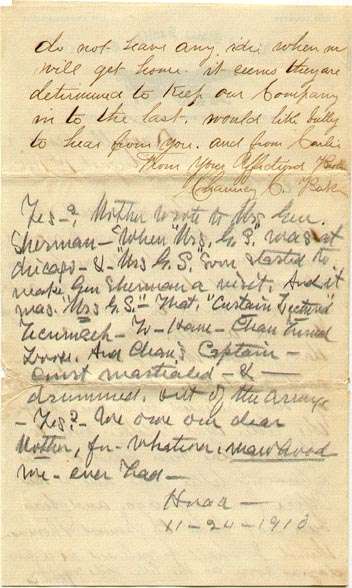 do not leave any idie when we
will get home. it seems they are
determined to Keep our Company
in to the last. would like bully
to hear from you. and from
From your Affectiond
Chauncy C.
Yes-? Mother wrote to Mrs Gen.
Sherman - "When "Mrs. G. S." was at
chicago - & - Mrs G. S. Soon started to
make Gen Sherman a visit. And it
was "Mrs G. S." - That. "Curtain Lectured"
Tecumach - To - Have - Chan turned
Loose. And Chan's Captain -
Court martialed - & -
drummed. out of the
- Yes?- We owe our dear
Mother, for - whatever.
we - ever had -
11-24-1910